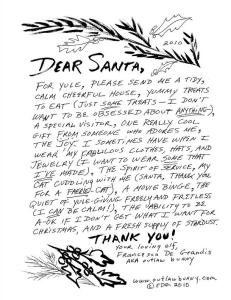 2010
DEAR SANTA,
FOR YULE, PLEASE SEND ME A TIDY,
CALM CHEERFUL HOUSE, YUMMY TREATS
TO EAT (JUST SOME TREATS - I DON'T
WANT TO BE OBSESSED ABOUT ANYTHING),
A SPECIAL VISITOR, ONE REALLY COOL
GIFT FROM SOMEONE WHO ADORES ME,
THE JOY I SOMETIMES HAVE WHEN I
WEAR MY FABULOUS CLOTHES, HATS, AND
JEWELRY (I WANT TO WEAR SOME THAT
I'VE MADE), THE SPIRIT OF SERVICE, MY
CAT CUDDLING WITH ME (SANTA, THANK YOU
FOR A FAERIE CAT), A MOVIE BINGE, THE
QUIET OF YULE-GIVING FREELY AND FRETLESS
(I CAN BE CALM!), THE ABILITY TO BE
A-OK IF I DON'T GET WHAT I WANT FOR
CHRISTMAS, AND A FRESH SUPPLY OF STARDUST.
THANK YOU!
Your loving elf,
Francesca De Grandis
AKA outlaw bunny
www.outlawbunny.com
© FDG 2010